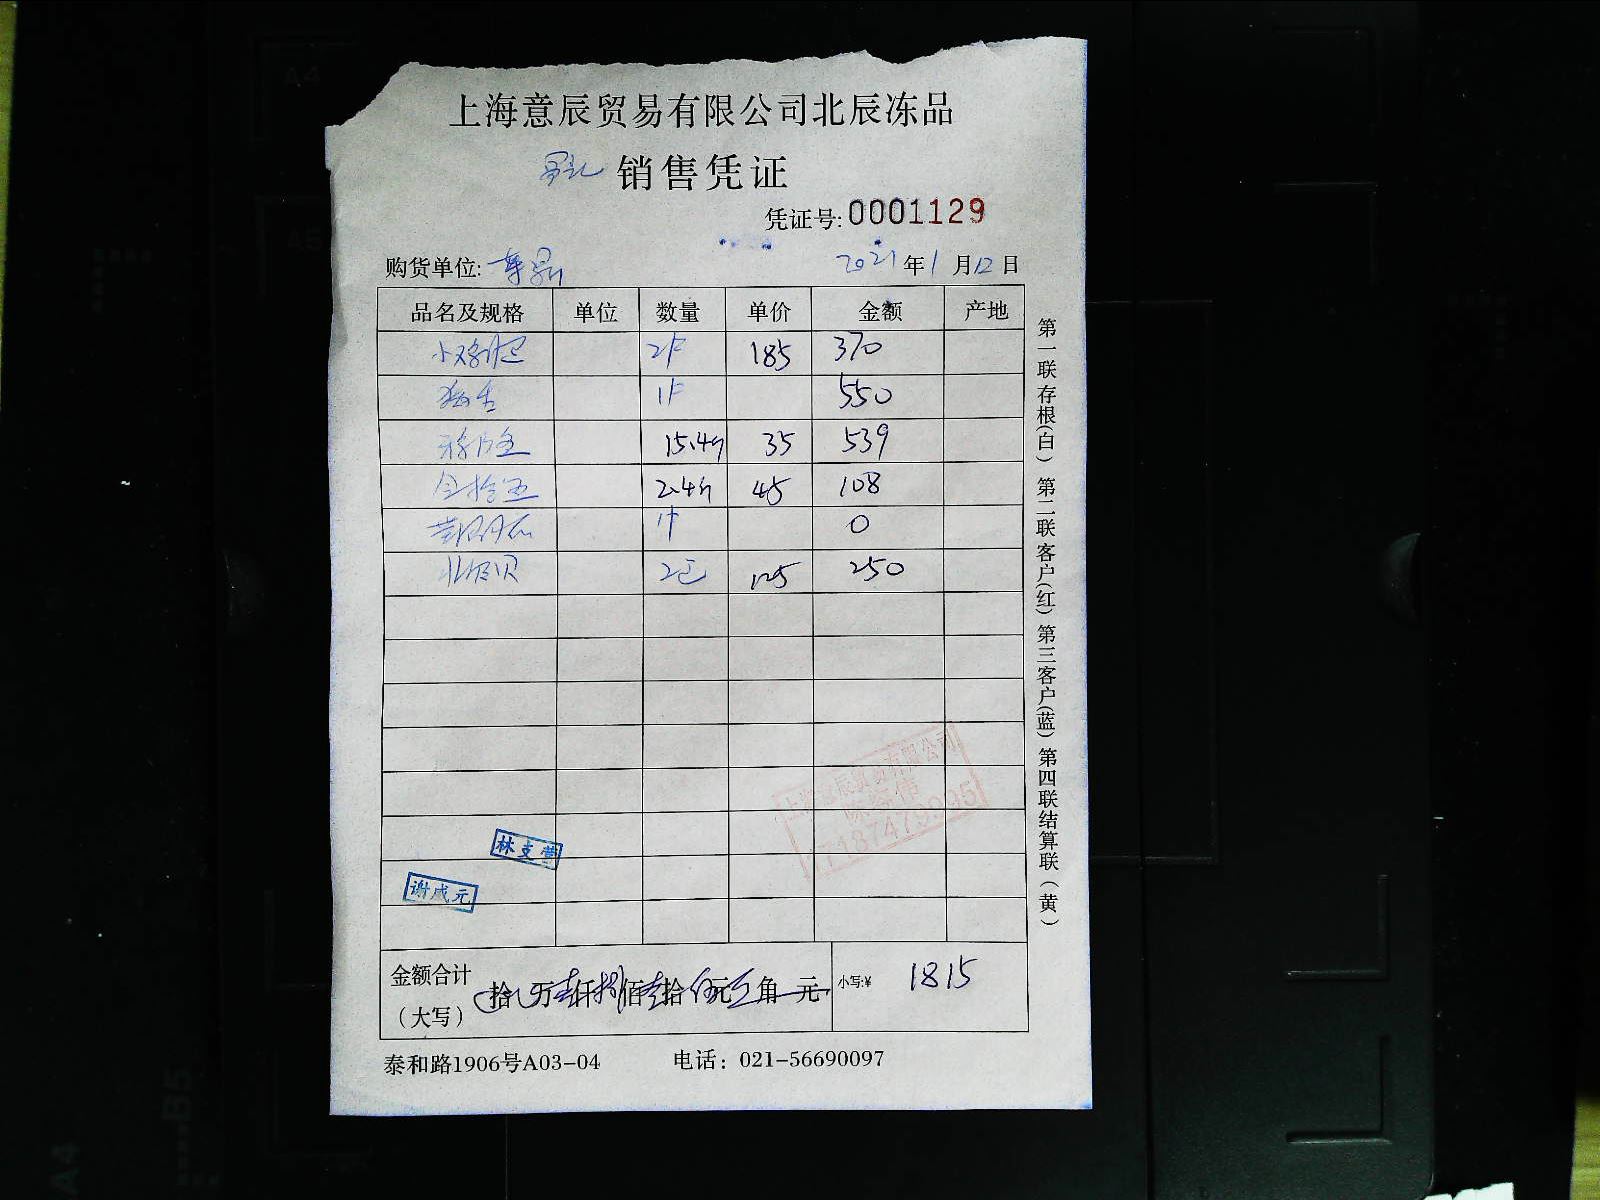 上海意辰贸易有限公司北辰冻品
销售凭证
凭证号:0001129
购货单位: 2021年1月12日
品名及规格 单位 数量 单价 金额 产地
2F 185 370
1F 550
15.4斤 35 539
2.4斤 45 108
1件 0
北极贝 2包 125 250
林支营
谢成元
上海意辰贸易有限公司
金额合计
(大写) 拾 万壹仟捌佰壹拾伍元 角 元 小写:¥ 1815
泰和路1906号A03-04 电话: 021-56690097
第一联存根(白) 第二联客户(红) 第三客户(蓝) 第四联结算联(黄)